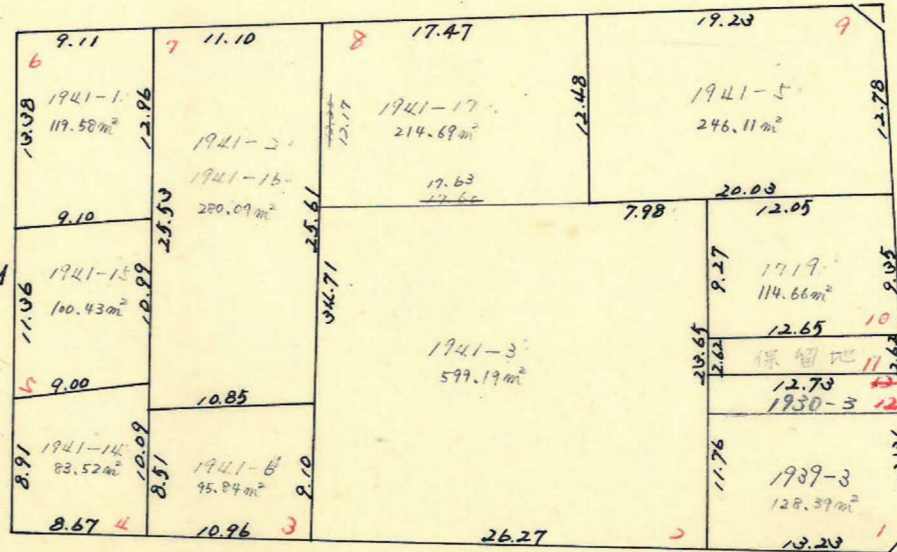 9.11
11.10
17.47
19.23
6
7
8
9
13.38
1941-1
119.58m²
12.96
1941-2
1941-16
280.09m²
25.53
25.61
12.17
1941-17
214.69m²
17.63
12.48
1941-5
246.11m²
12.78
20.03
9.10
7.98
12.05
11.36
1941-15
100.43m²
10.99
34.71
9.27
1719
114.66m²
9.35
10
12.65
1941-3
599.19m²
23.65
2.62
保留地
11
2.62
9.00
5
10.85
12.73
1930-3
12
8.91
1941-14
83.52m²
10.09
8.51
1941-6
95.84m²
9.10
11.76
1939-3
128.39m²
8.67
4
10.96
3
26.27
2
13.23
1